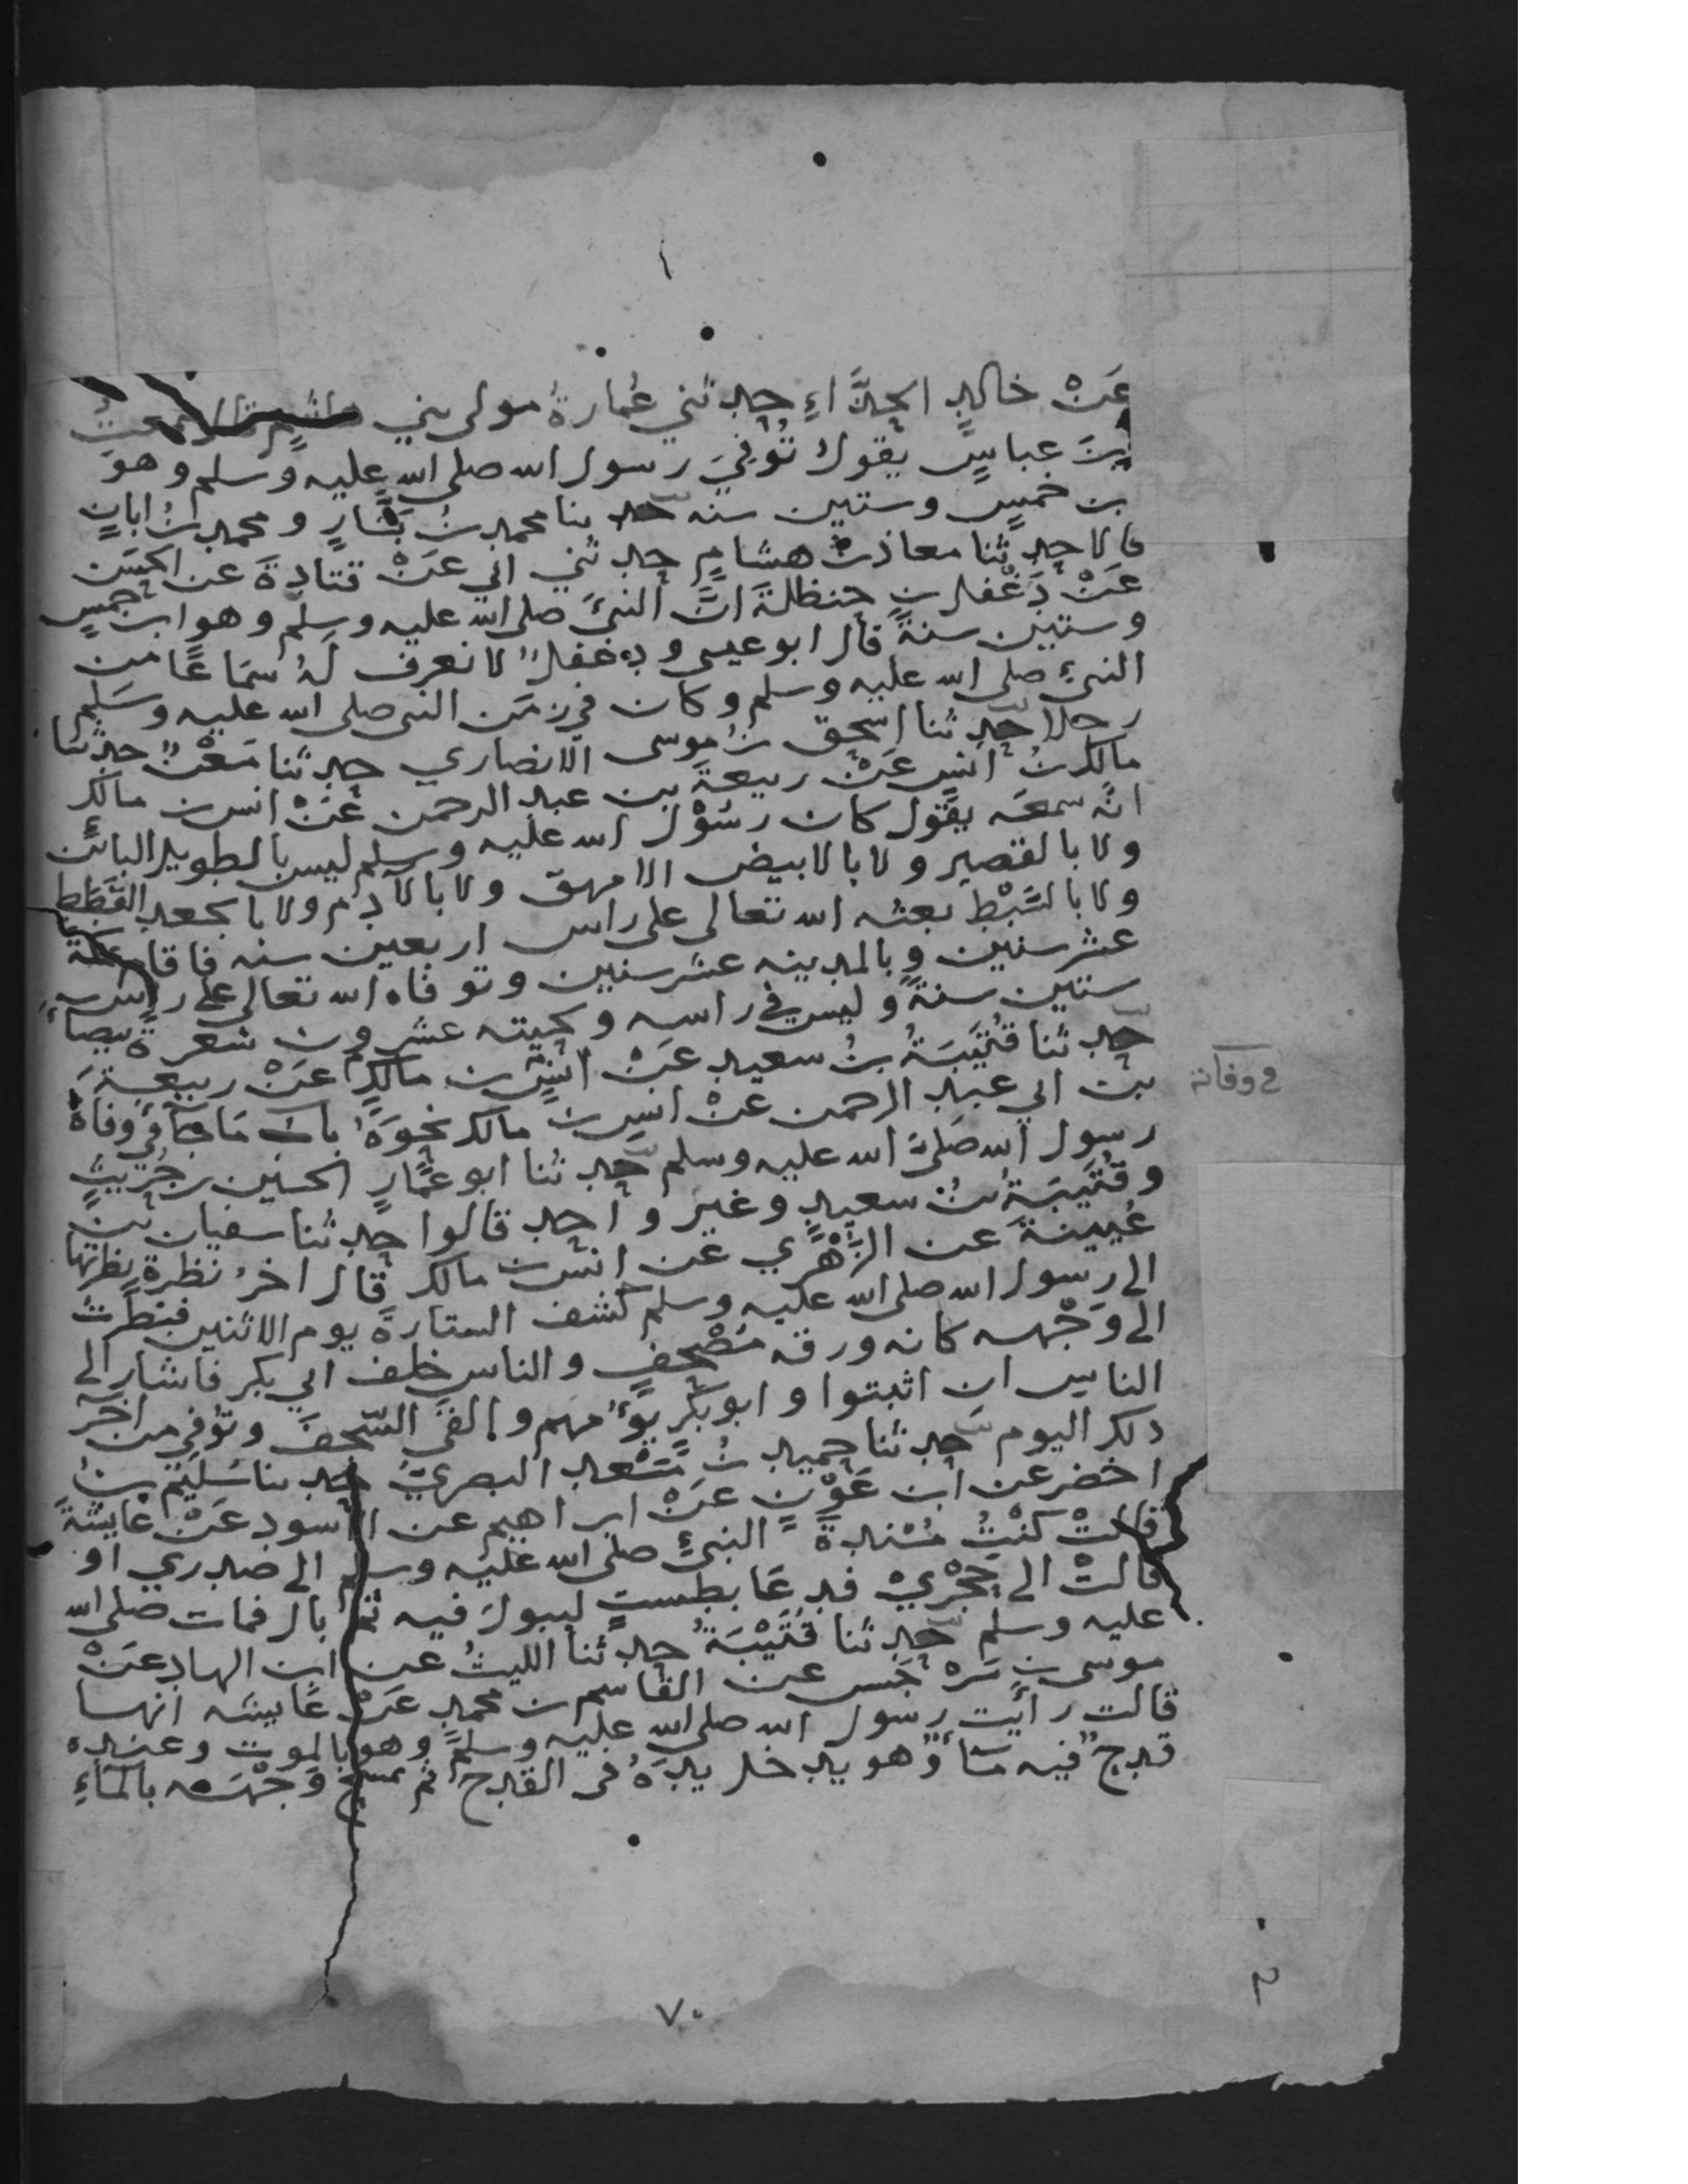 عَنْ خالدٍ الحذَّاءِ حدثني عُمارةُ مولى بني هاشمٍ قال سمعتُ
ابنَ عباسٍ يقولُ تُوُفِيَ رسول الله صلى الله عليه وسلم وهوَ
بن خمسٍ وستين سنه حدثنا محمد بنُ بَشَّارٍ ومحمد بنُ ابانٍ
قالا حدثنا معاذ بنُ هشامٍ حدثني ابي عَنْ قتادةَ عن الحسَن
عَنْ دَغْفلِ بنِ حنظلةَ انَّ النبيَّ صلى الله عليه وسلم وهو ابن خمسٍ
وستين سنةً قال ابو عيسى ودغفلٌ لا نعرف لَهُ سَمَاعًا من
النبيِّ صلى الله عليه وسلم وكان في زمَن النبي صلى الله عليه وسَلم
رجلا حدثنا اسحق بنُ موسى الانصاري حدثنا مَعْنٌ حدثنا
مالك بنُ انسٍ عَنْ ربيعةَ بن عبد الرحمن عَنْ انس بن مالك
انَّه سمعَه يقول كان رسُوْل الله عليه وسلم ليس بالطويل البائن
ولا بالقصير ولا بالابيض الامهق ولا بالآدمِ ولا بالجعد القَطَط
ولا بالسَّبْطِ بعثه الله تعالى على راس اربعين سنه فاقام بمكة
عشر سنين وبالمدينه عشر سنين وتوفاه الله تعالى على راس
ستين سنةً وليس في راسه ولحيته عشرون شعرةً بيضاءَ
حدثنا قُتَيْبَةُ بنُ سعيد عَنْ انسٍ بن مالكٍ عَنْ ربيعةَ
بن ابي عبد الرحمن عنْ انس بن مالك نحْوَهُ باب مَا جَآءَ في وفاةِ
في وفاته
رسول الله صَلىَّ الله عليه وسلم حدثنا ابو عمَّارٍ الحسَين بن حُرَيثٍ
وقُتَيْبَةُ بنُ سعيدٍ وغيرُ واحدٍ قالوا حدثنا سفيان بن
عُيينةَ عن الزُّهْرِي عن انس بن مالك قال اخرُ نظرةٍ نظرتها
الى رسول الله صلى الله عليه وسلم كشف الستارةَ يوم الاثنين فنظرتُ
الى وَجْهه كانه ورقه مُصْحَفٍ والناس خلف ابي بكر فاشار الى
الناس ان اثبتوا وابو بكْرٍ يَؤُمهم والقَى السّجفَ وتُوفي من آخر
ذلك اليوم حدثنا حميد بنُ مَسْعد البصريُّ حدثنا سُلَيْم بنُ
اخضر عن ابن عَوْنٍ عَنْ ابراهيم عن الاسود عَنْ عَايشةَ
قالتْ كنْتُ مُسْندةً النبيَّ صلى الله عليه وسلم الى صدري او
قالتْ الى حِجْرِيْ فدعَا بطستٍ ليبولَ فيه ثم بال فمات صلى الله
عليه وسلم حدثنا قُتَيْبَةُ حدثنا الليثُ عن ابن الهاد عَنْ
موسى بن سَرْجَس عن القاسم بن محمدٍ عَنْ عَايشه انها
قالت رأيت رسول الله صلى الله عليه وسلم وهو بالموت وعنده
قدحٌ فيه مَآءٌ وهو يدخل يدهُ في القدح ثم يمسح وَجْهَه بالمآءِ
٧٠